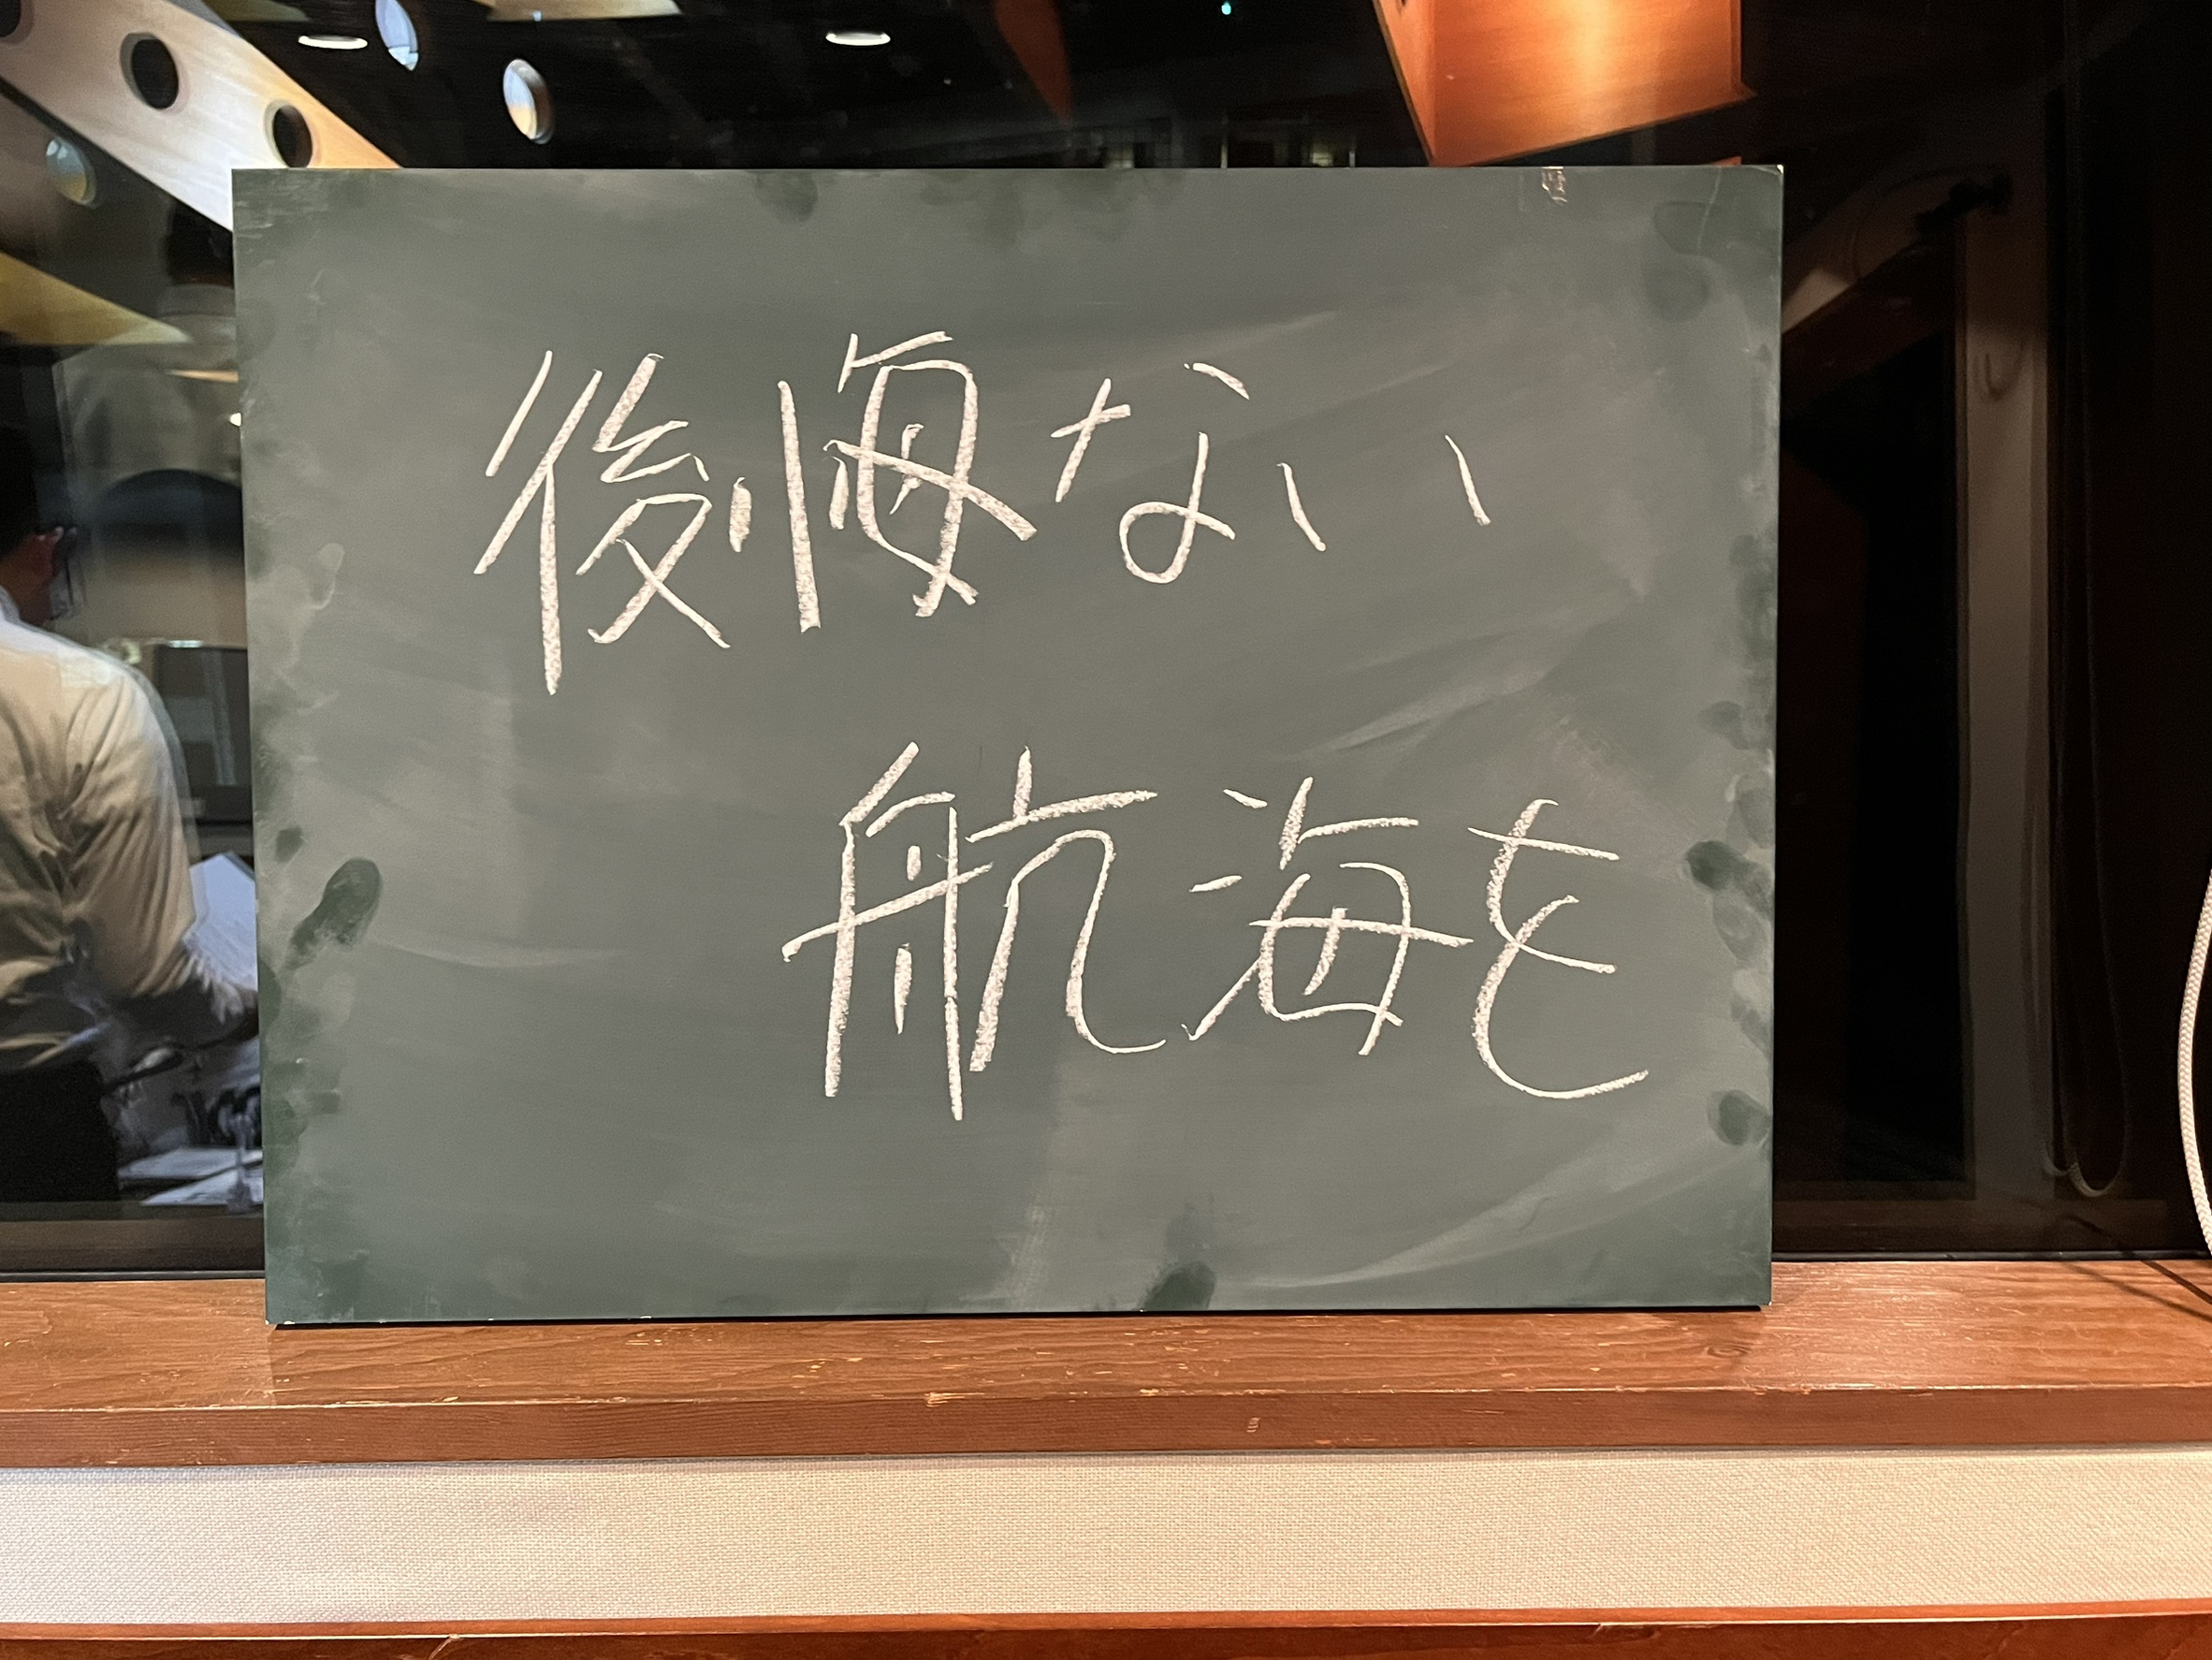 後悔ない
航海を